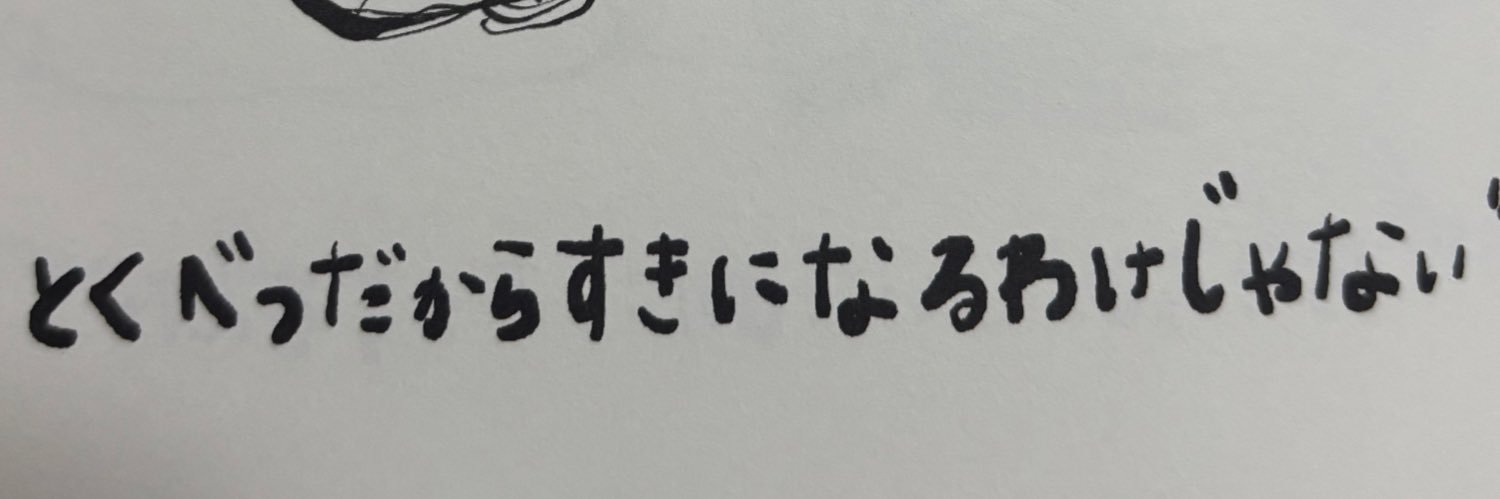 とくべつだからすきになるわけじゃない